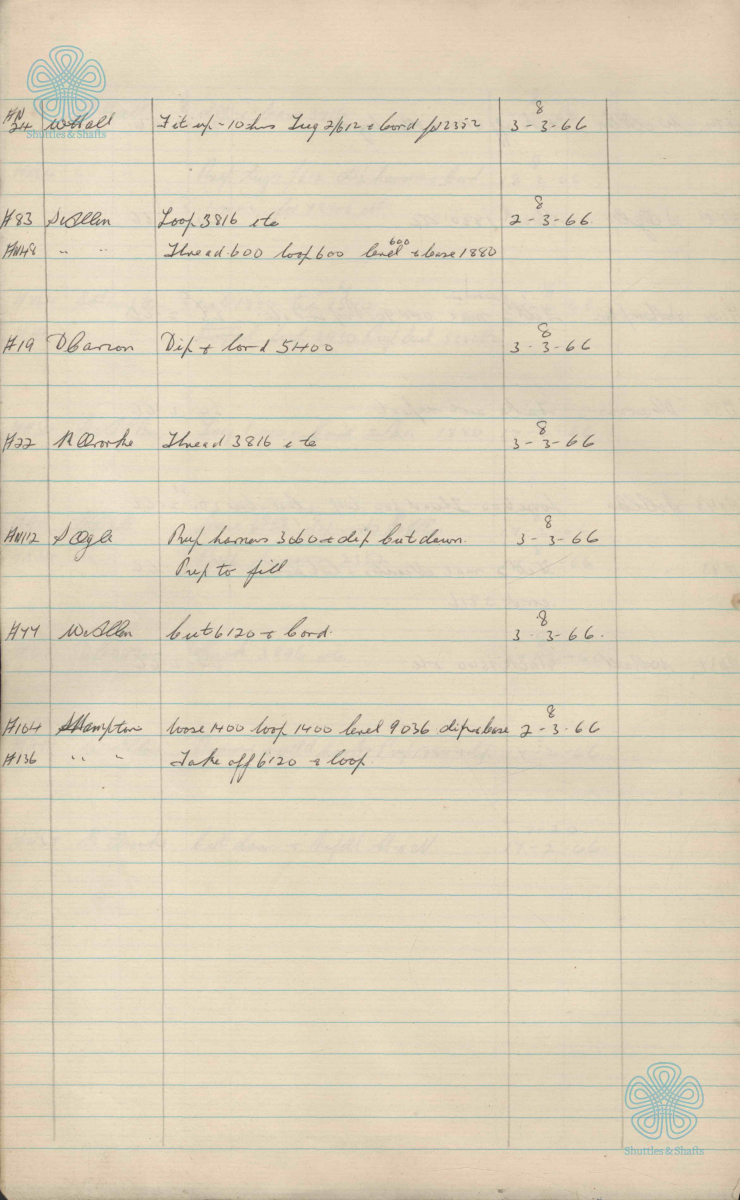 8
HN 24 W Hall Fit up - 10 hrs Lug 2/612 & cord 12352 3-3-66
Shuttles & Shafts
8
H83 S Allen Loop 3816 etc 2-3-66
HN48 " " Thread 600 loop 600 level 600 & base 1880
8
H19 D Carson Dip & cord 51400 3-3-66
8
H22 R ORorke Thread 3816 etc 3-3-66
8
HN112 S Ogle Prep harness 3060 & dip cut down 3-3-66
Prep to fill
8
H44 W Allen Cut 6120 & Cord. 3-3-66.
8
H104 Hampton loose 1400 loop 1400 level 9036 dip & base 2-3-66
H136 " " Take off 6120 & loop
Shuttles & Shafts